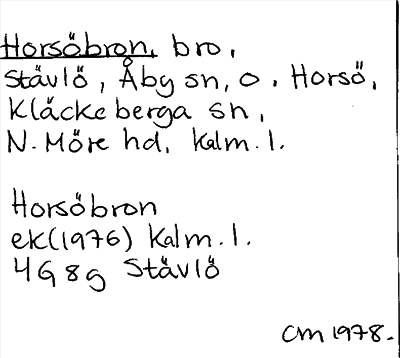 Horsöbron, bro,
Stävlö, Åby sn, o. Horsö,
Kläckeberga sn,
N. Möre hd, Kalm. l.
Horsöbron
ek(1976) Kalm. l.
4G 8g Stävlö
CM 1978.